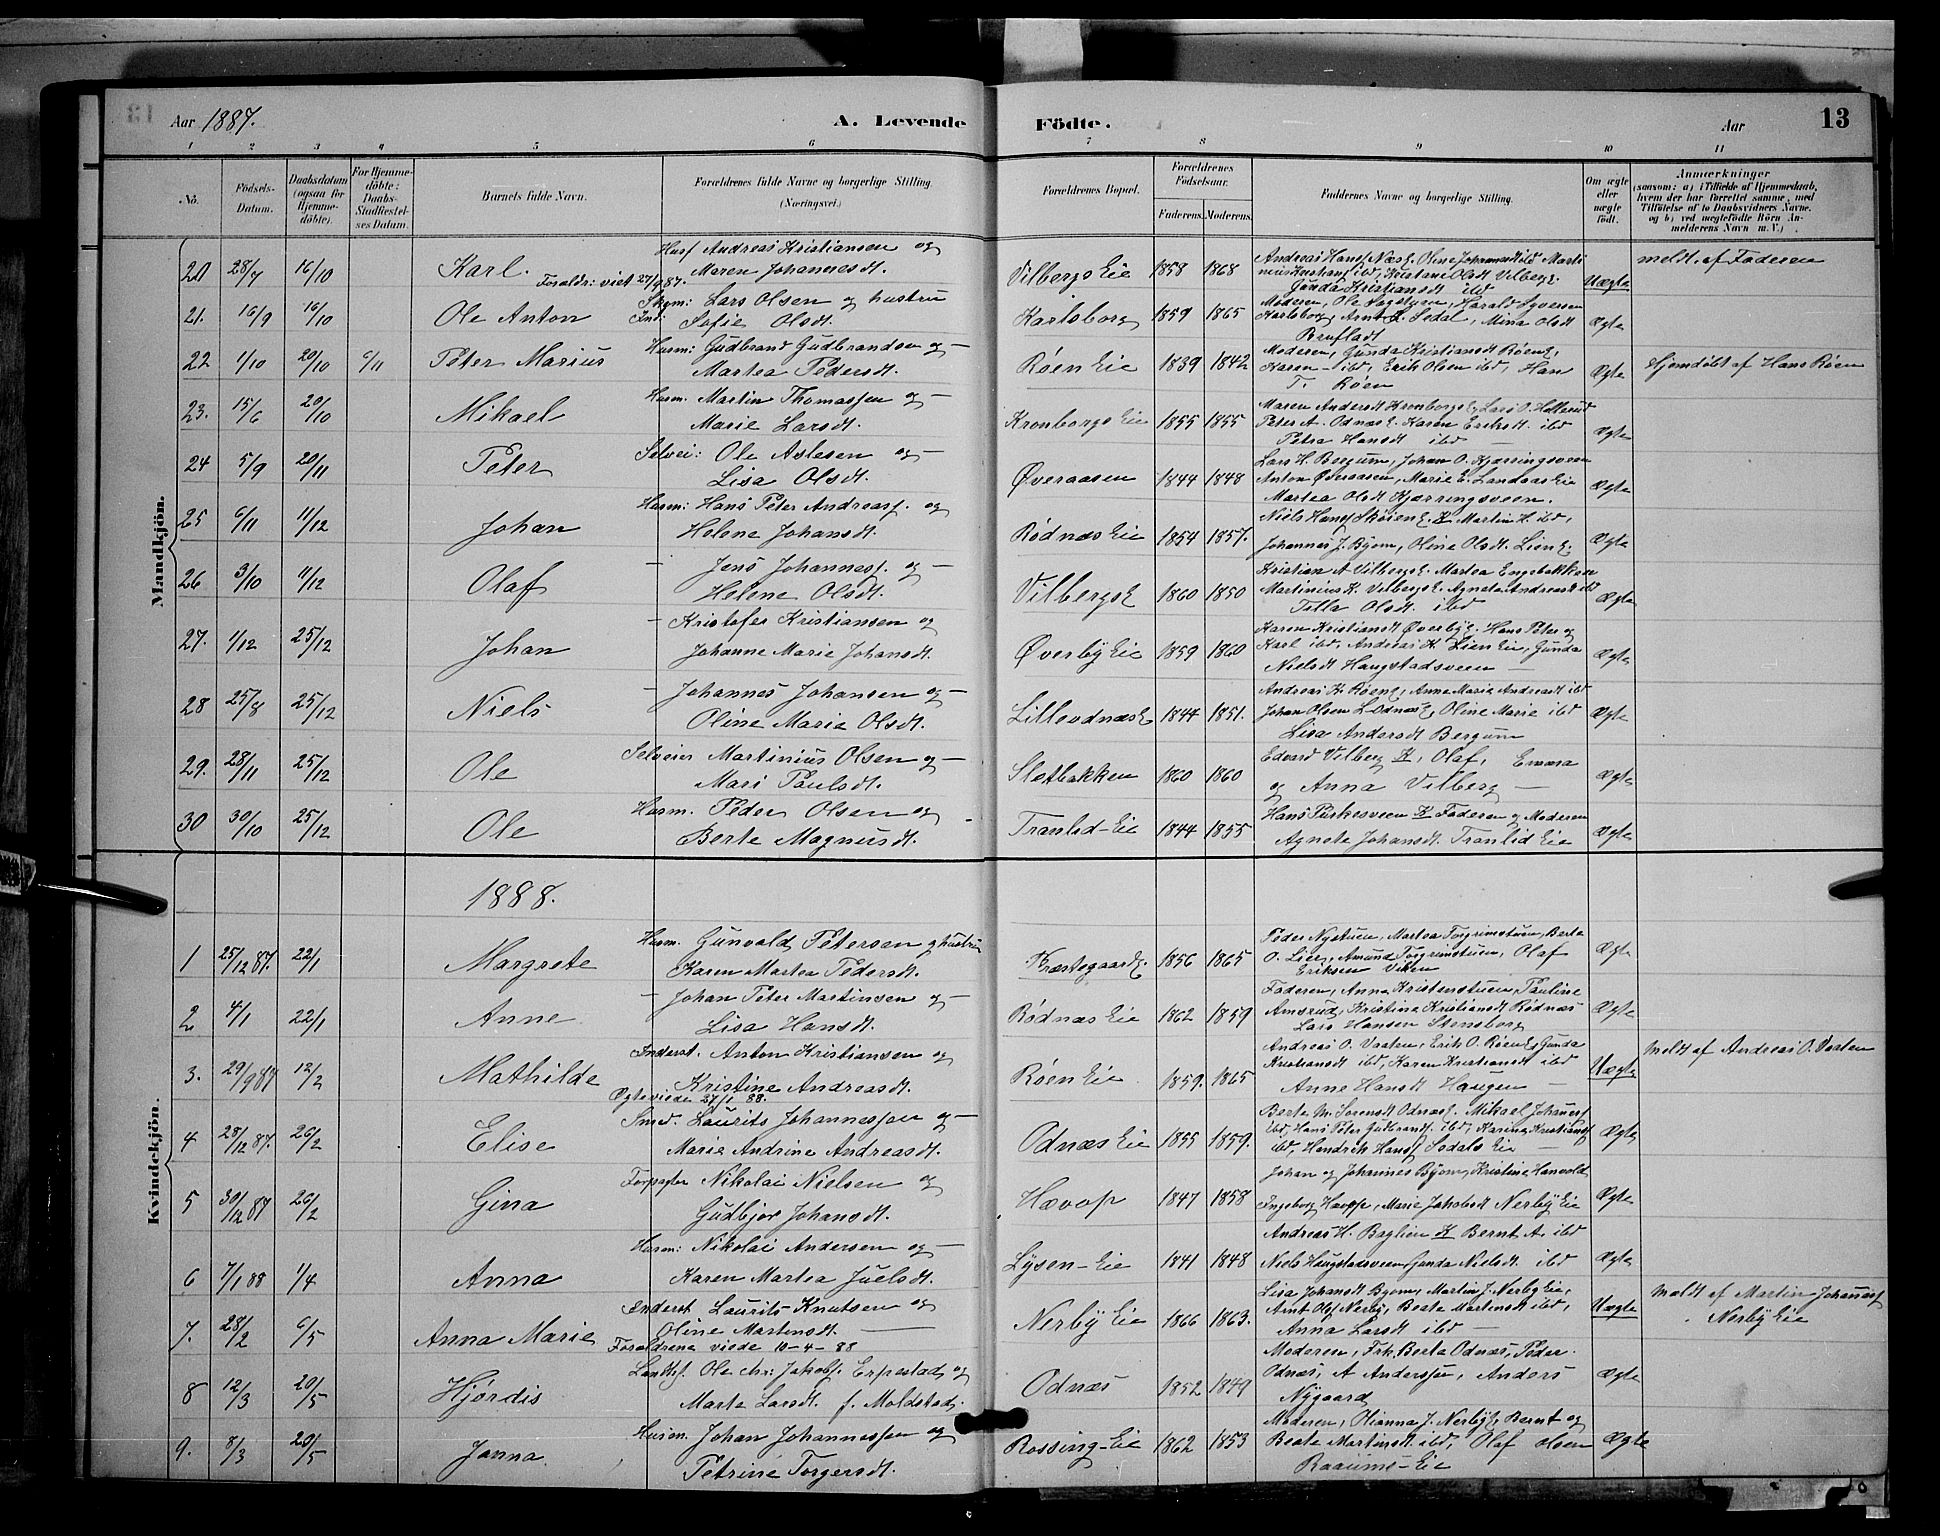 Aar 1887. A. Levende Födte. Aar 13
1 2 3 4 5 6 7 8 9 10 11
No. Födsels-Datum. Daabsdatum (ogsaa for Hjemmedöbte). For Hjemmedöbte: Daabs-Stadfæstelses Datum. Barnets fulde Navn. Forældrenes fulde Navne og borgerlige Stilling. (Næringsvei.) Forældrenes Bopæl. Forældrenes Födselsaar. Faderens. Moderens. Faddernes Navne og borgerlige Stilling. Om ægte eller uægte födt. Anmærkninger (saasom: a) i Tilfælde af Hjemmedaab, hvem der har forrettet samme, med Tilföielse af to Daabsvidners Navne, og b) ved uægtefödte Börn Anmelderens Navn m. V.)
Mandkjön.
20 28/7 16/10 Karl. Husf Andreas Kristiansen og Maren Johannesdt. Foraldr: viet 27/9 87. Vilbergs Eie 1858 1868 Gunda Kristiansdt ibd Uægte meldt af Faderen
21. 16/9 16/10 Ole Anton Lars Olsen og hustru Sofie Olsdt. Karlsborg 1859 1865 Moderen, Ole Sagstuen, Harald Syversen Karlsborg, Arnt L. Sedal, Mina Olsdt Brufladt Ægte
22 1/10 20/10 6/11 Peter Marius Husm: Gudbrand Gudbrandsen og Martea Pedersdt. Røen Eie 1839 1842 Moderen, Gunda Kristiansdt Røen E, Karen - ibd, Erik Olsen ibd, Han T. Røen Ægte Hjemdøbt af Hans Røen
23. 15/6 20/10 Mikael Husm. Martin Thomassen og Marie Larsdt. Kronborgs Eie 1855 1855 Maren Andersdt Kronborgs E, Lars O. Hollerud Peter A. Odnæs E. Karen Eriksdt. ibd Petra Hansdt ibd Ægte
24 5/9 20/11 Peter Selvei: Ole Aslesen og Lisa Olsdt. Øveraasen 1844 1848 Lars H. Bergum, Johan O. Kjærringsveen Anton Øveraasen, Marie E. Landaas Eie Martea Olsdt Kjærringsveen. Ægte
25 6/11 11/12 Johan Husm: Hans Peter Andreasf. og Helene Johansdt. Rødnæs Eie 1854 1857. Niels Hansf Skøien E. K Martin H. ibd, Johannes J. Byom, Oline Olsdt. Lien E. Ægte
26 3/10 11/12 Olaf Jens Johannesf. og Helene Olsdt. Vilbergs E 1860 1850 Kristian A Vilbergs E. Martea Engebakken Martinius K. Vilbergs E. Agneta Andreasdt ibd Tilla Olsdt. ibd Ægte
27. 1/12 25/12 Johan Kristofer Kristiansen og Johanne Marie Johansdt. Øverby Eie 1859 1860 Karen Kristiansdt Øverby E. Hans Peter og Karl ibd, Andreas K. Lien Eie, Gunda Nielsdt Haugstadsveen Ægte
28 25/8 25/12 Niels Johannes Johansen og Oline Marie Olsdt. Lilleodnæs E 1844 1851. Andreas K. Røen E, Anne Marie Andreasdt ibd Johan Olsen L. Odnæs E, Oline Marie ibd Lisa Andersdt Bergum Ægte
29. 28/11 25/12 Ole Selveier Martinius Olsen og Mari Paulsdt. Sletbakken 1860 1860 Edvard Vilberg K, Olaf, Emma og Anna Vilberg Ægte
30 30/10 25/12 Ole Husm. Peder Olsen og Berte Magnusdt. Tranlid-Eie 1844 1855 Hans Purkesveen K Faderen og Moderen Agnete Johansdt. Tranlid Eie Ægte
1888.
Kvindekjön.
1 25/12 87. 22/1 Margrete Husm. Gunvald Petersen og hustru Karen Martea Pedersdt. Kræstegaard E. 1856 1865 Peder Nystuen, Martea Torgrimstuen, Berte O. Lien, Amund Torgrimstuen, Olaf Eriksen Viken Ægte
2 4/1 22/1 Anne Johan Peter Martinsen og Lisa Hansdt. Rødnæs Eie 1862 1859 Faderen, Anna Kristenstuen, Pauline Amsrud, Kristine Kristiansdt Rødnæs Lars Hansen Stensborg Ægte
3. 29/9 87 12/2 Mathilde Inderst. Anton Kristiansen og Kristine Andreasdt. Ægteviede 27/1 88. Røen Eie 1859. 1865 Andreas O. Vasten, Erik O. Røen E, Gunda Kristiansdt ibd, Karen Kristiansdt ibd Anne Hansdt Haugen Uægte Meldt af Andreas O. Vasten
4 28/12 87. 26/2 Elise Smed. Laurits Johannessen og Marie Andrine Andreasdt. Odnæs Eie 1855 1859. Berte M. Sørensdt Odnæs E. Mikael Johanesf ibd, Hans Peter Gudbrandsf. ibd, Karina Kristiansf ibd, Hendrik Hansf Sedals Eie Ægte
5 30/12 87 26/2 Gina Forpagter Nikolai Nielsen og Gudbjør Johansdt. Hævop 1847 1858 Johan og Johannes Byom, Kristine Hanvold Ingeborg Hævop, Marie Jakobsdt Nerby Eie Ægte
6 7/1 88 1/4 Anna Husm: Nikolai Andersen og Karen Martea Juelsdt. Lysen-Eie 1841 1848 Andreas H. Baglien K Bernt A. ibd Niels Haugstadsveen, Gunda Nielsdt ibd Ægte
7. 28/2 6/5 Anna Marie Inderst Laurits Knutsen og Oline Martensdt. Foraldrene viede 10-4-88 Nerby Eie 1866 1863. Lisa Johansdt Byom, Martin J. Nerby Eie, Arnt Olsf Nerby, Beate Martensdt ibd, Anna Larsdt ibd Uægte Meldt af Martin Johannesf Nerby Eie
8 12/3 20/5 Hjørdis Ole Chr: Jakobf. Erpestad og Marte Larsdt. f. Moldstad. Odnæs 1852 1849 Moderen, Frk. Berta Odnæs, Peder Odnæs, A Anderssen, Anders Nygaard Ægte
9. 8/3 20/5 Janna Husm. Johan Johannessen og Petrine Torgersdt. Rossing-Eie 1862 1853 Moderen, Olianna J. Nerby E. Bernt og Beate Martinsdt ibd, Olaf Olsen Raaums-Eie Ægte